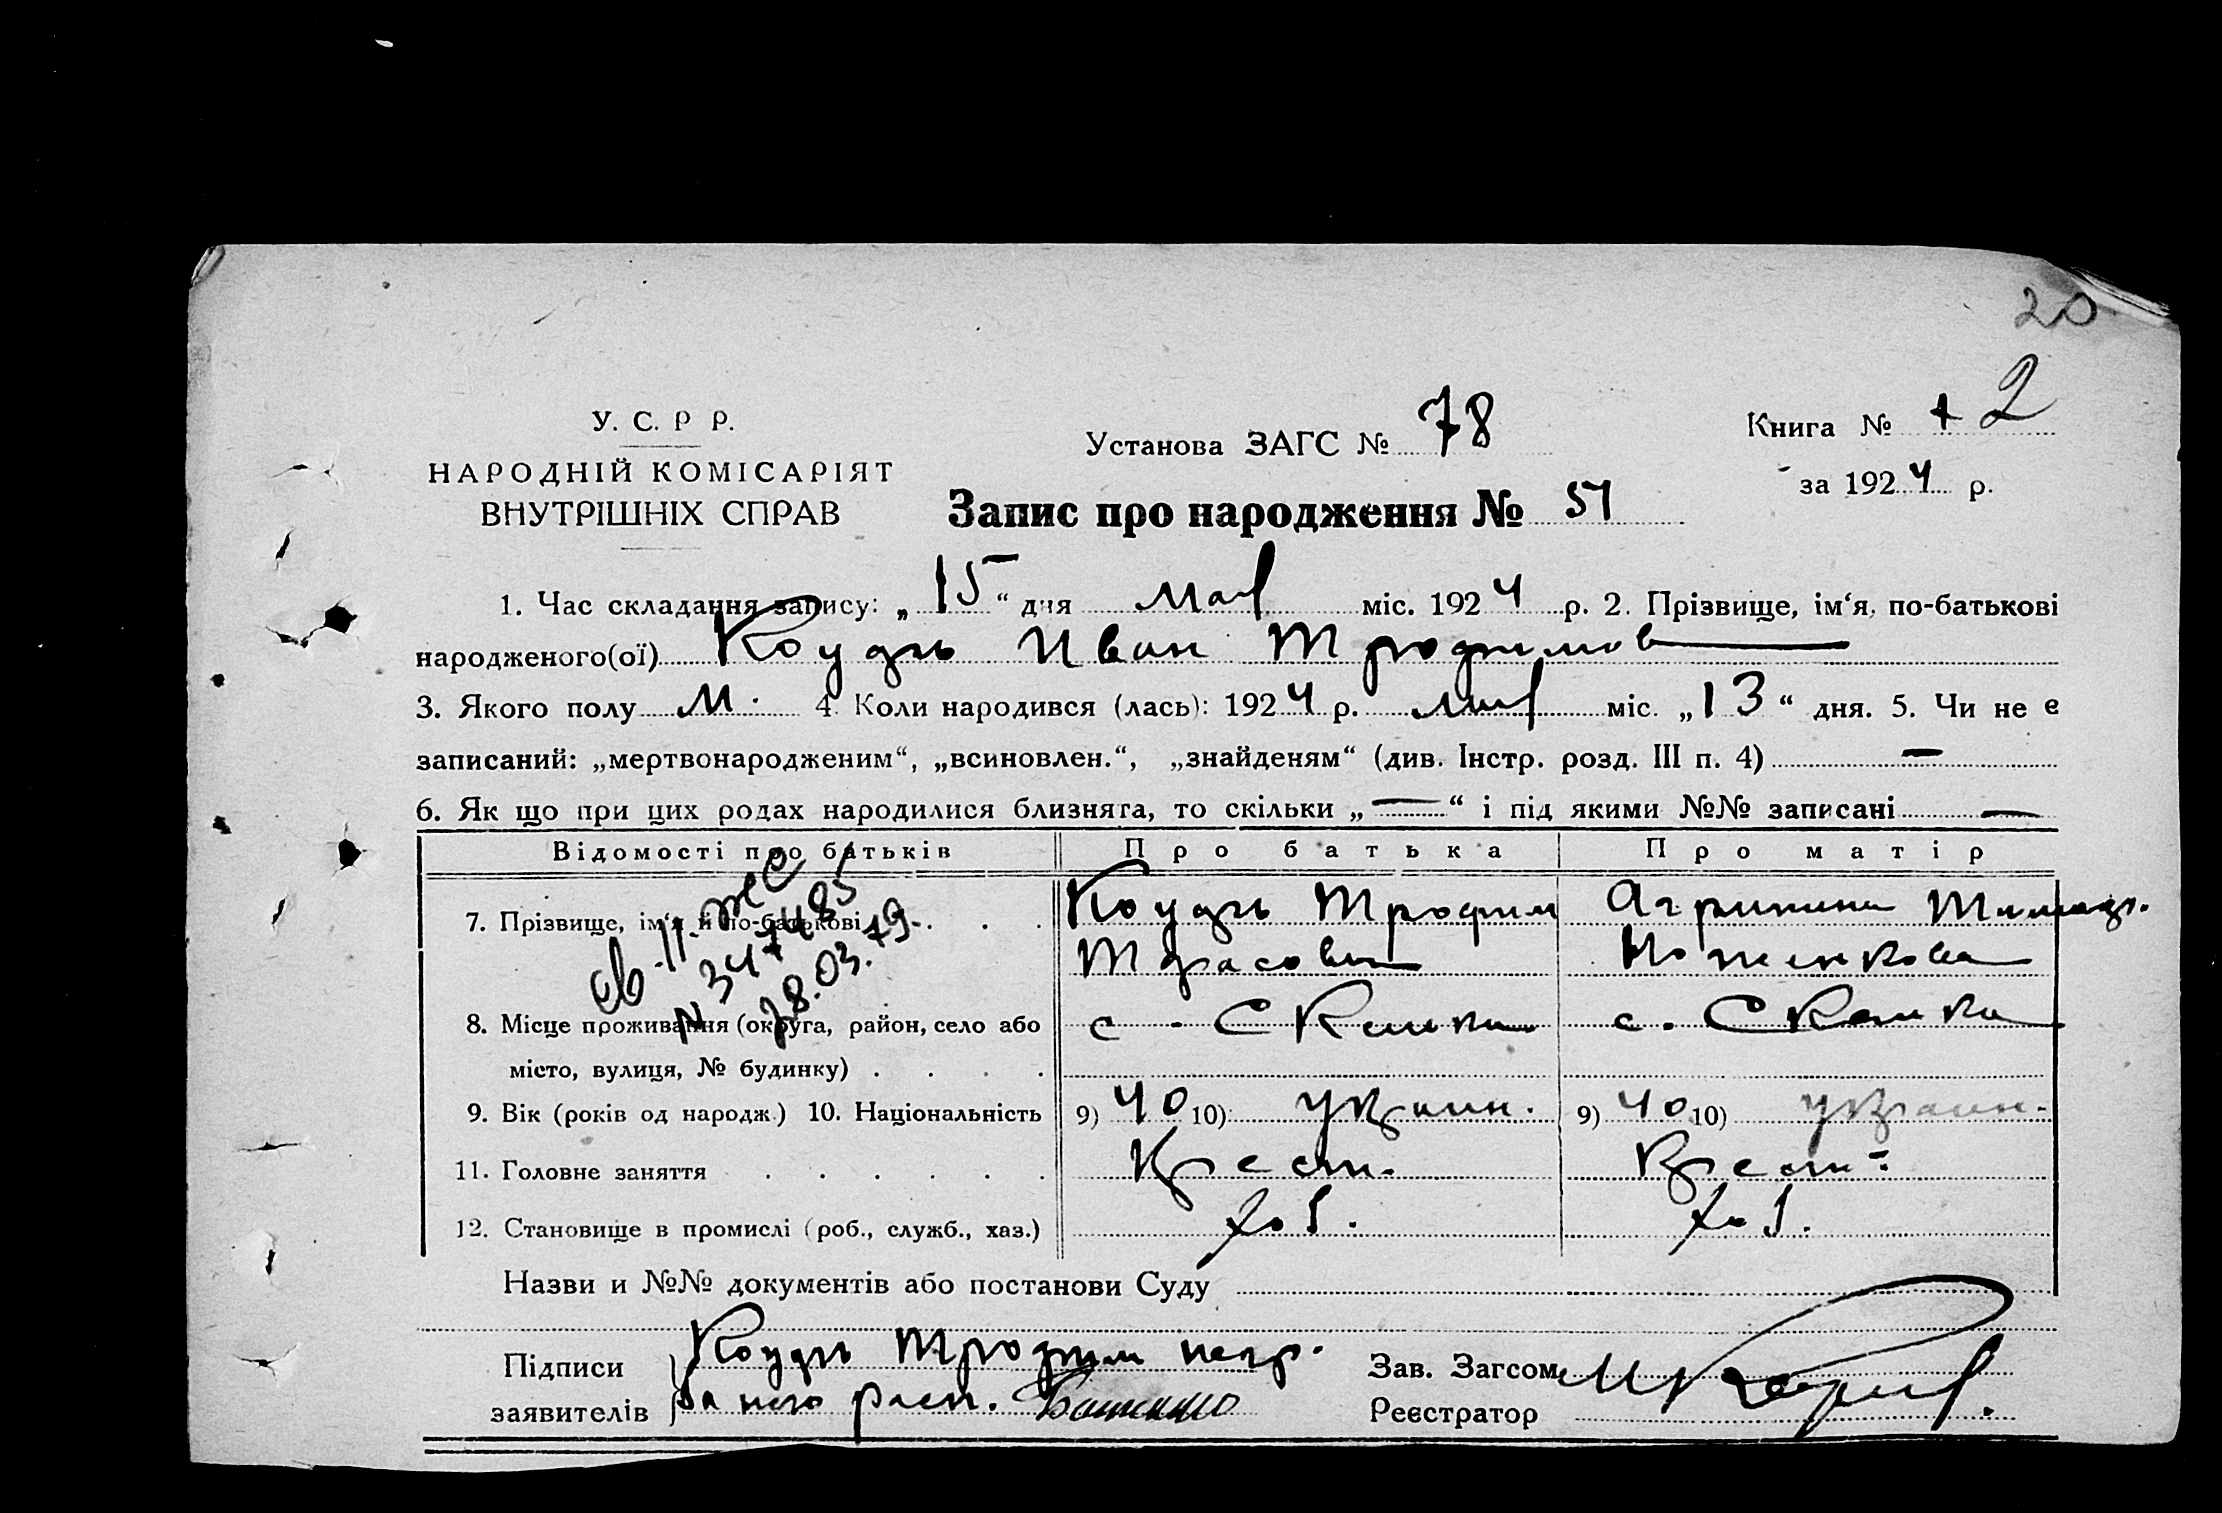 20
У. С. Р Р.
НАРОДНІЙ КОМІСАРІЯТ
ВНУТРІШНІХ СПРАВ
Установа ЗАГС № 78
Книга № 2
за 1924 р.
Запис про народження № 51
1. Час складання запису: „15“ дня мая міс. 1924 р. 2. Прізвище, ім‘я, по-батькові
народженого(ої) Коудзь Иван Трофимов
3. Якого полу м. 4. Коли народився (лась): 1924 р. міс. „13“ дня. 5. Чи не є
записаний: „мертвонародженим“, „всиновлен.“, „знайденям“ (див. Інстр. розд. III п. 4) —
6. Як що при цих родах народилися близнята, то скільки „—“ і під якими №№ записані —
Відомості про батьків Про батька Про матір
7. Прізвище, ім‘я й по-батькові Коудзь Трофим Агрипина
Тарасович
8. Місце проживання (округа, район, село або с. с.
місто, вулиця, № будинку)
9. Вік (років од народж.) 10. Національність 9) 40 10) украин. 9) 40 10) украин.
11. Головне заняття Крест. Крест.
12. Становище в промислі (роб., служб., хаз.) хоз. хоз.
св. II-
N 3474485
28.03.79.
Назви и №№ документів або постанови Суду
Підписи Коудзь Трофим негр.
заявителів за него расп.
Зав. Загсом
Реєстратор